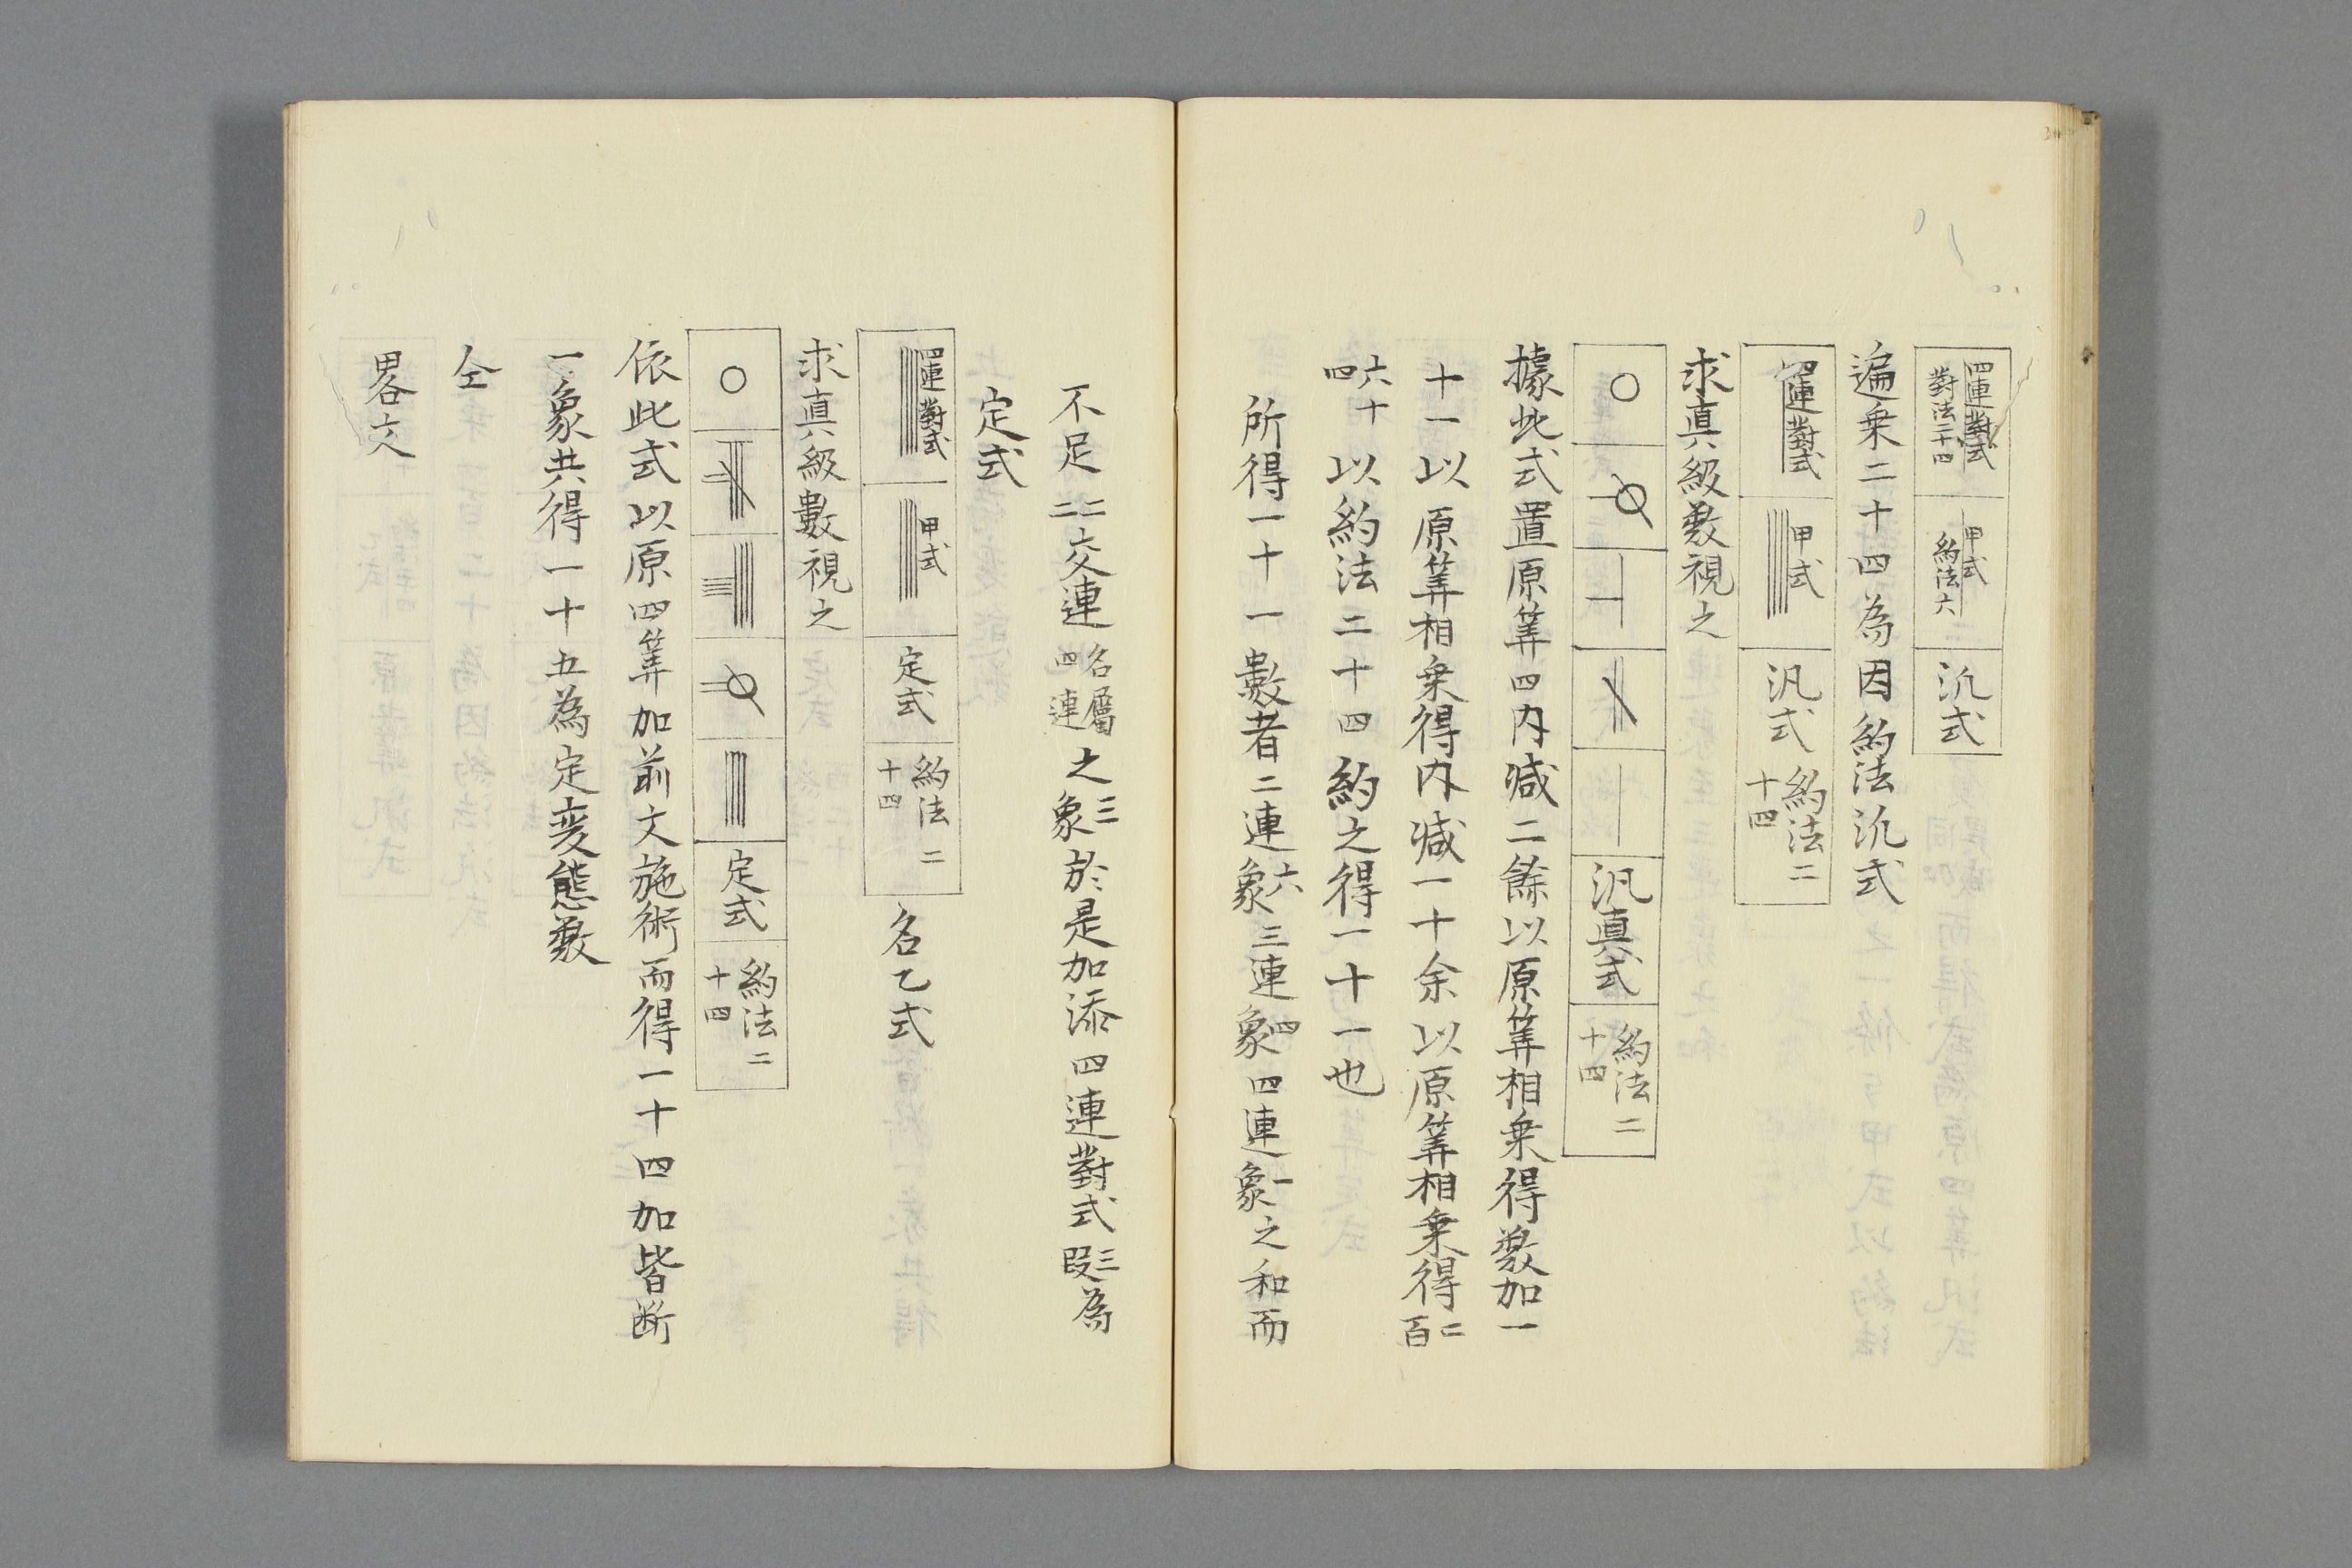 四連對式 對法二十四 甲式 約法六 汎式
遍乗二十四為因約法汎式
四連對式 甲式 汎式 約法二十四
求真級数視之
〇 汎真式 約法二十四
據此式置原筭四内减二餘以原筭相乗得数加一
十一以原筭相乗得内减一十余以原筭相乗得二百
六十四以約法二十四約之得一十一也
所得一十一數者二連象六三連象四四連象一之和而
不足二二交連名屬四連之象三於是加添四連對式三段為
定式
四連對式 甲式 定式 約法二十四 名乙式
求真級數視之
〇 定式 約法二十四
依此式以原四筭加前文施術而得一十四加皆断
一象共得一十五為定変態数
仝
畧文